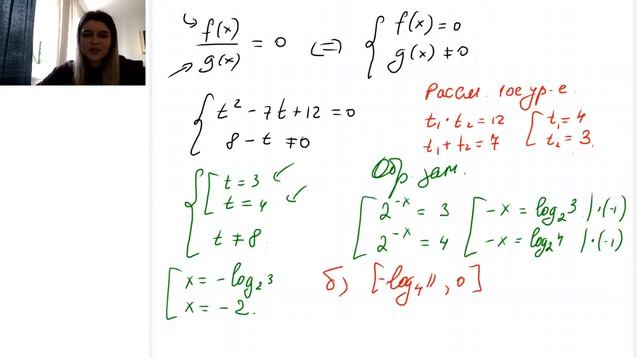 f(x)/g(x) = 0 ⇔ { f(x) = 0
g(x) ≠ 0
{ t² - 7t + 12 = 0
8 - t ≠ 0
Рассм. 1ое ур-е.
t₁ · t₂ = 12 [ t₁ = 4
t₁ + t₂ = 7 t₂ = 3.
{ [ t = 3
t = 4
t ≠ 8.
Обр. зам.
[ 2^{-x} = 3 [ -x = log₂3 | · (-1)
2^{-x} = 4 -x = log₂4 | · (-1)
[ x = - log₂3
x = -2.
б) [-log₄11, 0]